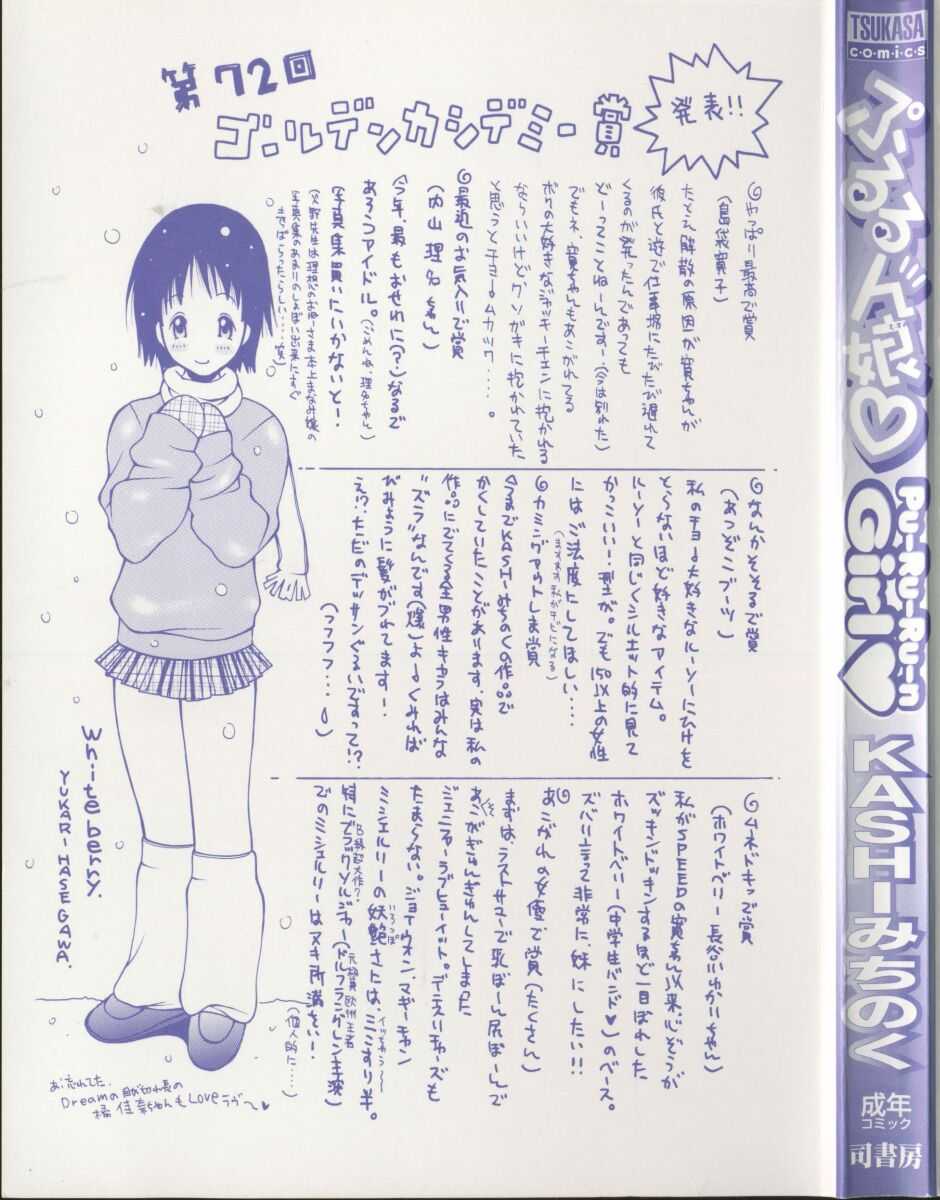 第72回
ゴールデンカシデミー賞
発表!!
◎やっぱり最高で賞
(島袋寛子)
たとえ解散の原因が寛ちゃんが
彼氏と遊んで仕事場にたびたび遅れて
くるのが発ったんであっても
どーってことねーんです…(今は別れた)
でもネ、寛ちゃんもあこがれてる
ボクの大好きなジャッキーチェンに抱かれる
ならいいけど、クソガキに抱かれていた
と思うとチョームカツク……。
◎最近のお気入りで賞
(内山理名ちゃん)
今年、最もおせわに(?)なるで
あろうアイドル。(ごめんね、理名ちゃん)
写真集買いにいかないと!
◎なんかそそるで賞
(あつぞこブーツ)
私のチョー大好きなルーソーにひけを
とらないほど好きなアイテム。
ルーソーと同じくシルエット的に見て
かっこいい!型が。でも150以上の女性
にはご法度にしてほしい…
(ますます私がチビになる)
◎カミングアウトしま賞
今までKASHIみちのくの作品で
かくしていたことがあります。実は私の
作品にでてくる全男性キャラはみんな
"ズラ"なんです(爆)よ〜くみれば
びみょうに髪がづれてます!
え!?ただのデッサンぐるいですって!?
(フフフフ…)
◎ムネドキッで賞
(ホワイトベリー 長谷川ゆかりちゃん)
私がSPEEDの寛ちゃん以来、心ぞうが
ズッキンドッキンするほど一目ぼれした
ホワイトベリー(中学生バンド♥)のベース。
ズバリ言って非常に、妹にしたい!!
◎あこがれの女優で賞(たくさん)
まずは、ラストサマーで乳ぼーん尻ぼーんで
あごがぎゅんぎゅんしてしまった
ジェニファー・ラブヒューイット。デニスリチャーズも
たまらない。ジョイウォン、マギーチャン
ミシェルリーの妖艶さとは、ミミずり半。
特にブラックソルジャー(ドルフラングレン主演)
でのミシェルリーはヌキ所満さい!
(個人的に……)
White berry.
YUKARI HASEGAWA.
あ、忘れてた。
Dreamの目が切れ長の
橘佳奈ちゃんもLoveラヴ〜♥
TSUKASA
comics
ぷるるン娘♡
PU-RU-RU-n
Girl♡
KASHIみちのく
成年
コミック
司書房